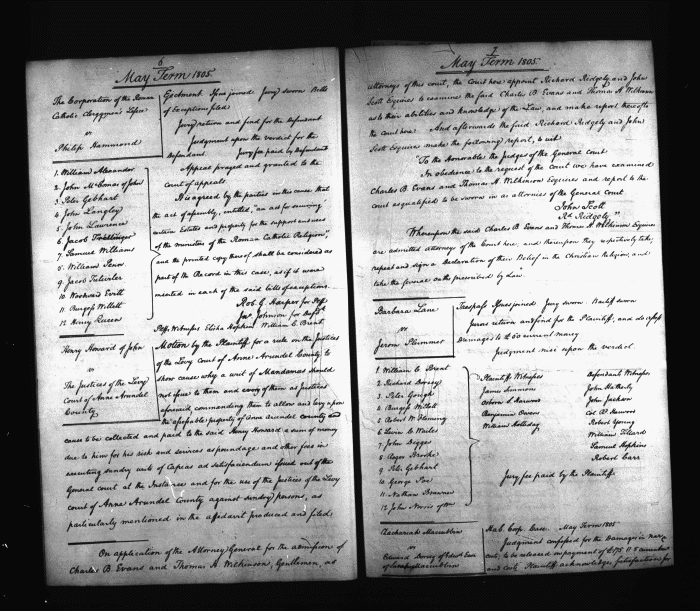 6
May Term 1805.
The Corporation of the Roman
Catholic Clergymen's Lessee
vs
Philip Hammond
Ejectment Issue joined Jury sworn Bills
of Exceptions filed
Jury return and find for the Defendant
Judgment upon the verdict for the
Defendant Jury fee paid by Defendant
Appeal prayed and granted to the
Court of appeals
It is agreed by the parties in this cause that
the act of assembly, entitled, "an act for securing
certain Estates and property for the support and uses
of the ministers of the Roman Catholic Religion,"
and the printed copy thereof shall be considered as
part of the Record in this case, as if it were
inserted in each of the said bills of exceptions.
Rob. G. Harper for Plff
Jas Johnson for Defdt
1. William Alexander
2. John McComas of John
3. Peter Gebhart
4. John Langley
5. John Lawrence
6. Jacob
7. Samuel Williams
8. William Penn
9. Jacob
10. Woodward Evitt
11. Burgess Willett
12. Henry Queen
Plffs Witnesses Elisha Hopkins William E. Brent
Henry Howard of John
vs
The Justices of the Levy
Court of Anne Arundel
County
Motion by the Plaintiff for a rule on the Justices
of the Levy court of Anne Arundel County to
show cause why a writ of Mandamus should
not issue to them and every of them as Justices
aforesaid, commanding them to allow and levy upon
the assessable property of Anne Arundel county and
cause to be collected and paid to the said Henry Howard a sum of money
due to him for his risk and services as poundage and other fees in
executing sundry writs of Capias ad satisfaciendum issued out of the
General court at the Instances and for the use of the Justices of the Levy
court of Anne Arundel County against sundry persons, as
particularly mentioned in the affidavit produced and filed
On application of the Attorney General for the admission of
Charles B. Evans and Thomas H. Wilkinson, Gentlemen, as
7
May Term 1805.
attorneys of this court, the Court here appoint Richard Ridgely and John
Scott Esquires to examine the said Charles B Evans and Thomas H. Wilkinson
as to their abilities and knowledge of the Law, and make report thereof to
the court here. And afterwards the said Richard Ridgely and John
Scott Esquires make the following report, to wit
"To the Honorable the Judges of the General court
In obedience to the request of the Court we have examined
Charles B Evans and Thomas H. Wilkinson Esquires and report to the
court as qualified to be sworn in as attornies of the General Court
John Scott
Rd Ridgely"
Whereupon the said Charles B Evans and Thomas H. Wilkinson Esquires
are admitted attorneys of the Court here, and thereupon they respectively take,
repeat and sign a Declaration of their Belief in the Christian Religion, and
take the several oaths prescribed by Law
Barbara Lane
vs
Jerom Plummer
Trespass Issue joined Jury sworn Bailiff sworn
Jurors return and find for the Plaintiff, and assess
Damages to £60 current money
Judgment nisi upon the verdict.
1. William C. Brent
2. Richard Dorsey
3. Peter Gough
4. Burgess Willett
5. Robert W. Fleming
6. Lewis C. Wailes
7. John Biggs
8. Roger Brooke
9. Peter Gebhart
10. George Poe
11. Nathan Browner
12. John Norris of
Plaintiffs Witnesses
James Simmons
Osborn S. Harwood
Benjamin Owens
William Holliday
Defendants Witnesses
John Hatherly
John Jackson
Col. Harwood
Robert Young
William Tillard
Samuel Hopkins
Robert Carr
Jury fee paid by the Plaintiff
Zachariah Maccubbin
vs
Edward Dorsey of
Hab. Corp. Case. May Term 1805
Judgment confessed for the Damages in narr
and costs, to be released on payment of £175
and Costs Plaintiff acknowledges satisfaction for